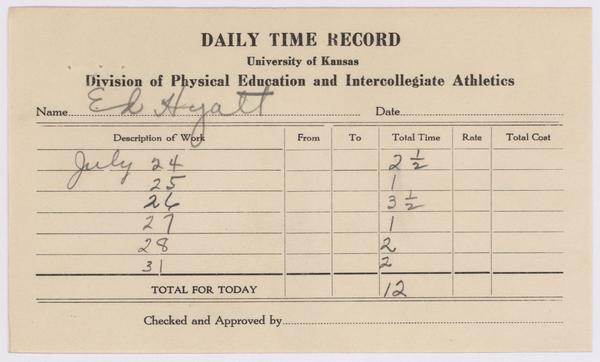 DAILY TIME RECORD
University of Kansas
Division of Physical Education and Intercollegiate Athletics
Name Ed Hyatt Date
Description of Work From To Total Time Rate Total Cost
July 24 2 1/2
25 1
26 3 1/2
27 1
28 2
31 2
TOTAL FOR TODAY 12
Checked and Approved by